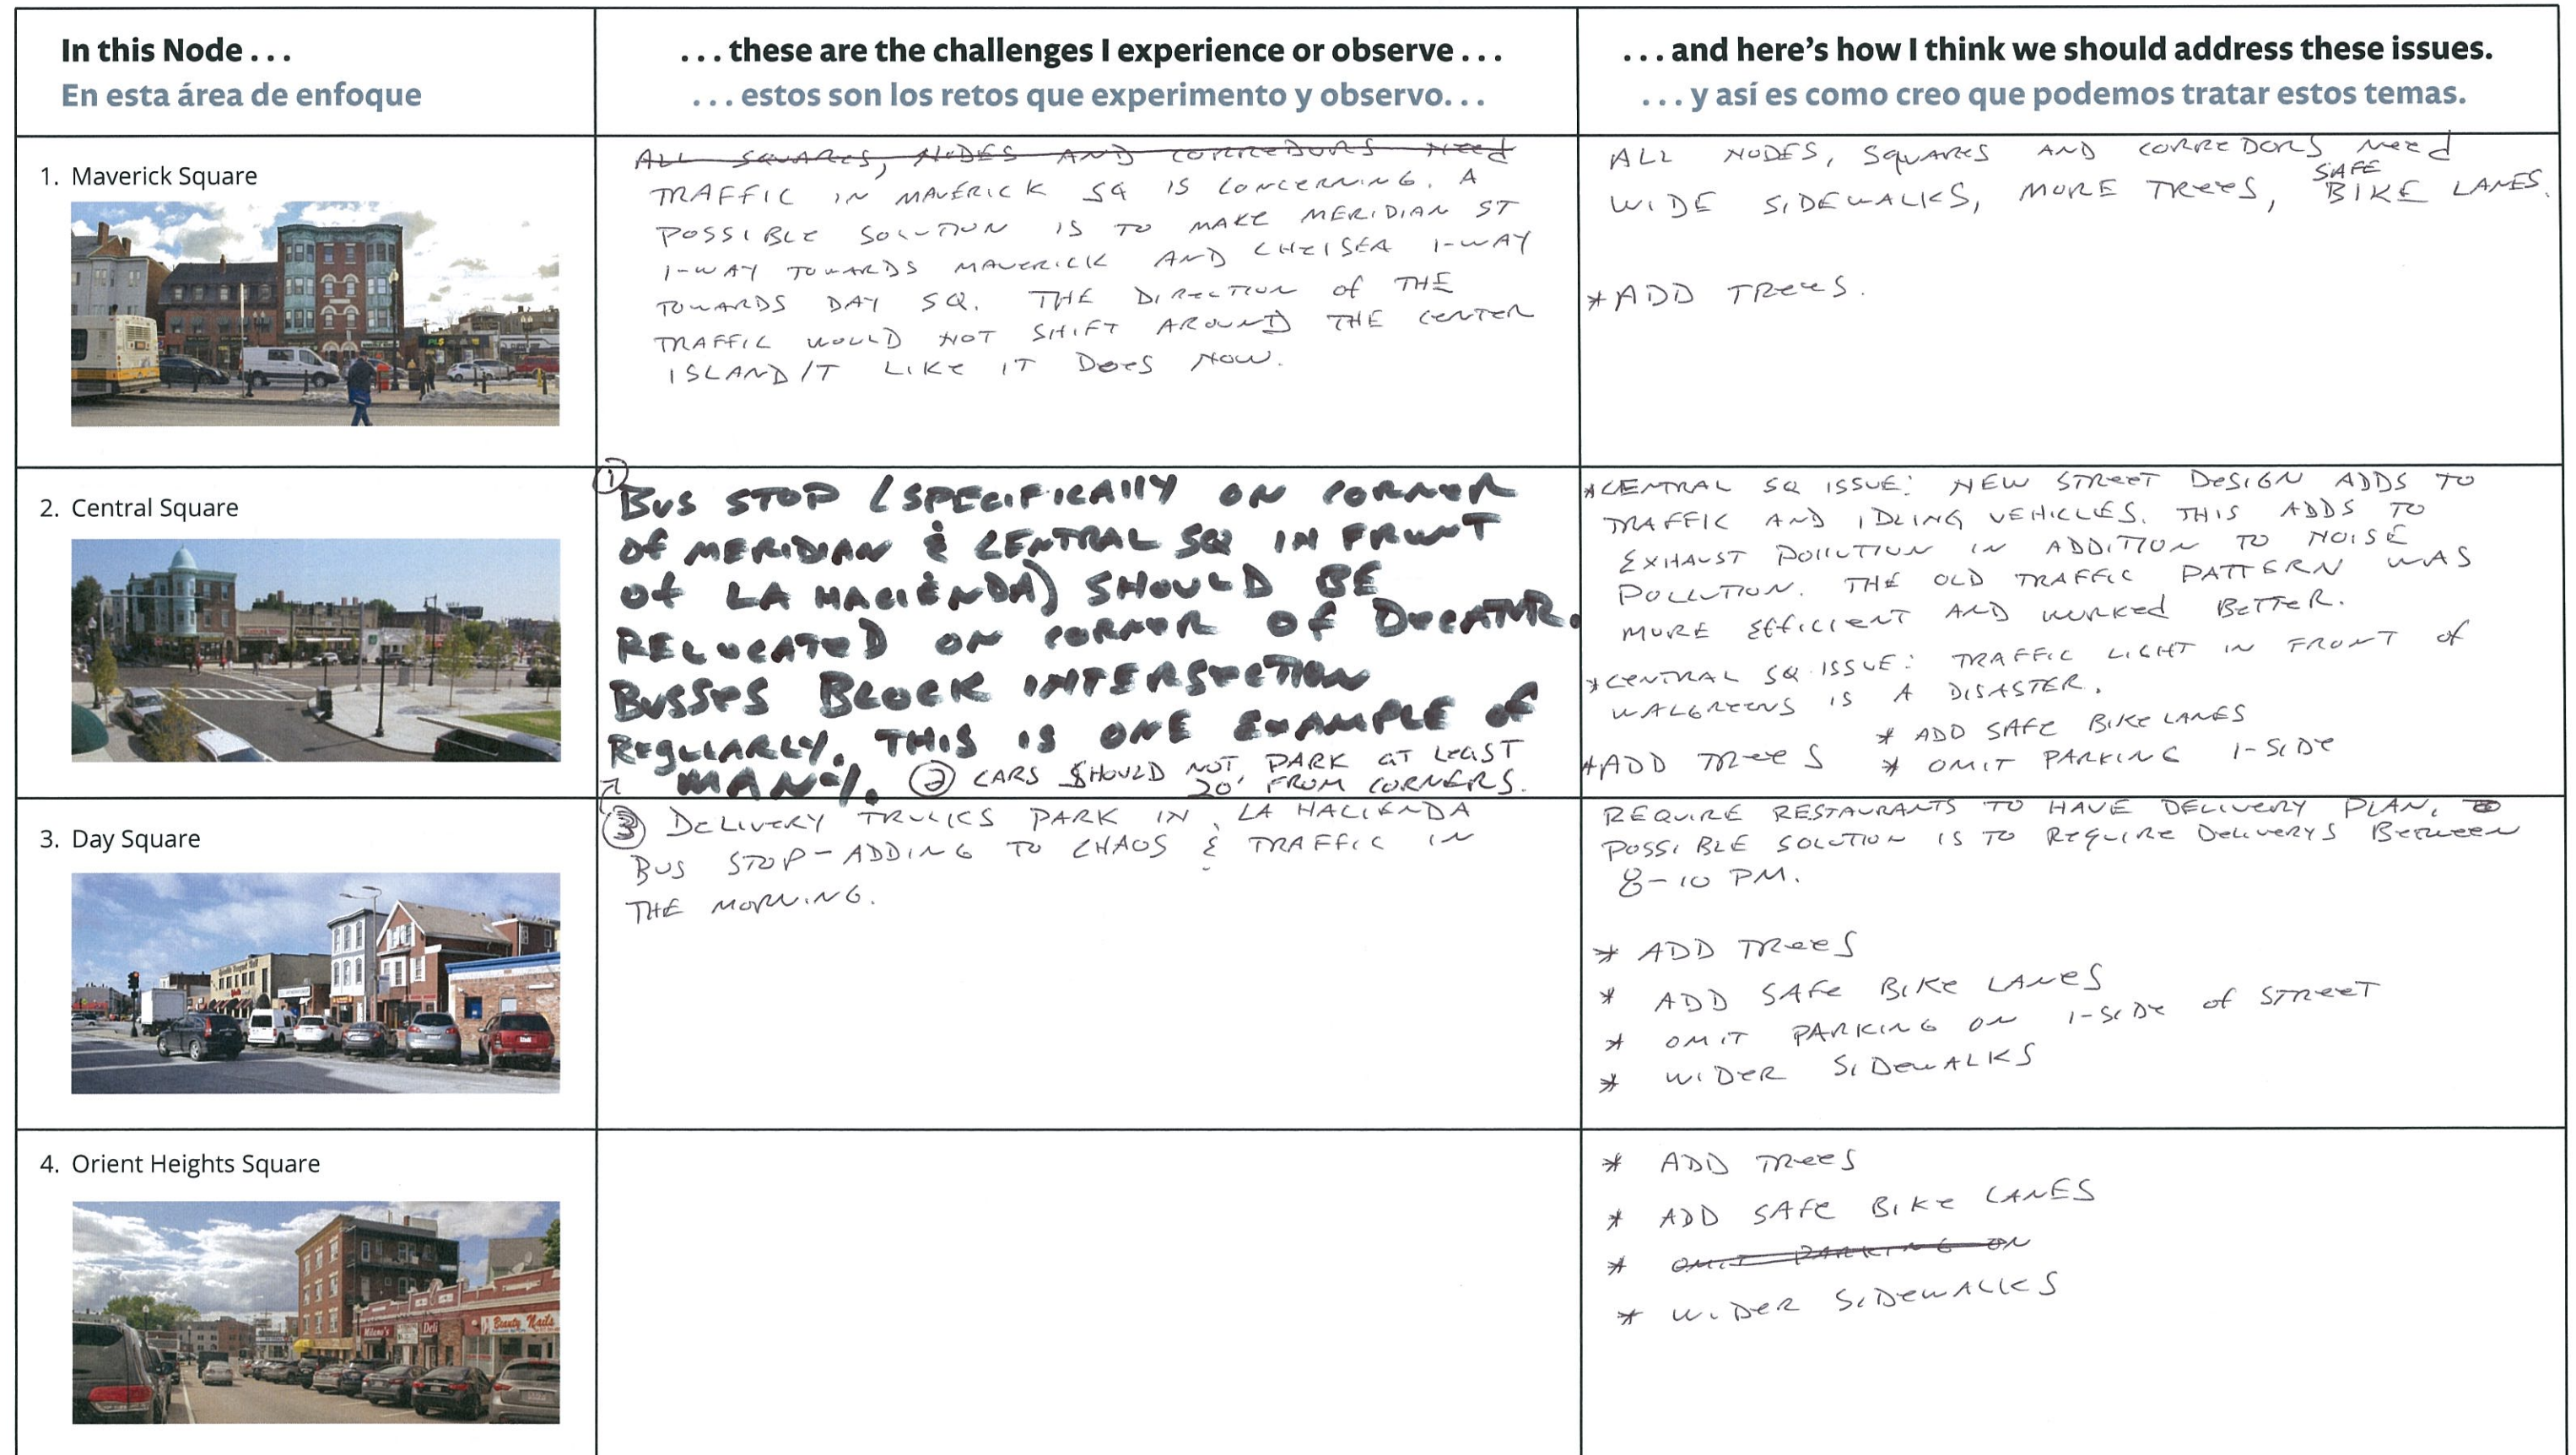 In this Node . . .
En esta área de enfoque
. . . these are the challenges I experience or observe . . .
. . . estos son los retos que experimento y observo. . .
. . . and here's how I think we should address these issues.
. . . y así es como creo que podemos tratar estos temas.
1. Maverick Square
ALL SQUARES, NODES AND CORREDORS NEED
TRAFFIC IN MAVERICK SQ IS CONCERNING. A
POSSIBLE SOLUTION IS TO MAKE MERIDIAN ST
1-WAY TOWARDS MAVERICK AND CHELSEA 1-WAY
TOWARDS DAY SQ. THE DIRECTION OF THE
TRAFFIC WOULD NOT SHIFT AROUND THE CENTER
ISLAND/T LIKE IT DOES NOW.
ALL NODES, SQUARES AND CORREDORS NEED
WIDE SIDEWALKS, MORE TREES, SAFE BIKE LANES.
* ADD TREES.
2. Central Square
① BUS STOP (SPECIFICALLY ON CORNER
OF MERIDIAN & CENTRAL SQ IN FRONT
OF LA HACIENDA) SHOULD BE
RELOCATED ON CORNER OF DECATUR.
BUSSES BLOCK INTERSECTION
REGULARLY. THIS IS ONE EXAMPLE OF
MANY. ② CARS SHOULD NOT PARK AT LEAST
20' FROM CORNERS.
* CENTRAL SQ ISSUE: NEW STREET DESIGN ADDS TO
TRAFFIC AND IDLING VEHICLES. THIS ADDS TO
EXHAUST POLLUTION IN ADDITION TO NOISE
POLLUTION. THE OLD TRAFFIC PATTERN WAS
MORE EFFICIENT AND WORKED BETTER.
* CENTRAL SQ ISSUE: TRAFFIC LIGHT IN FRONT OF
WALGREENS IS A DISASTER.
* ADD SAFE BIKE LANES
* ADD TREES * OMIT PARKING 1-SIDE
3. Day Square
③ DELIVERY TRUCKS PARK IN LA HACIENDA
BUS STOP - ADDING TO CHAOS & TRAFFIC IN
THE MORNING.
REQUIRE RESTAURANTS TO HAVE DELIVERY PLAN,
POSSIBLE SOLUTION IS TO REQUIRE DELIVERYS BETWEEN
8-10 PM.
* ADD TREES
* ADD SAFE BIKE LANES
* OMIT PARKING ON 1-SIDE OF STREET
* WIDER SIDEWALKS
4. Orient Heights Square
Milano's Deli
Beauty Nails
* ADD TREES
* ADD SAFE BIKE LANES
* OMIT PARKING ON
* WIDER SIDEWALKS